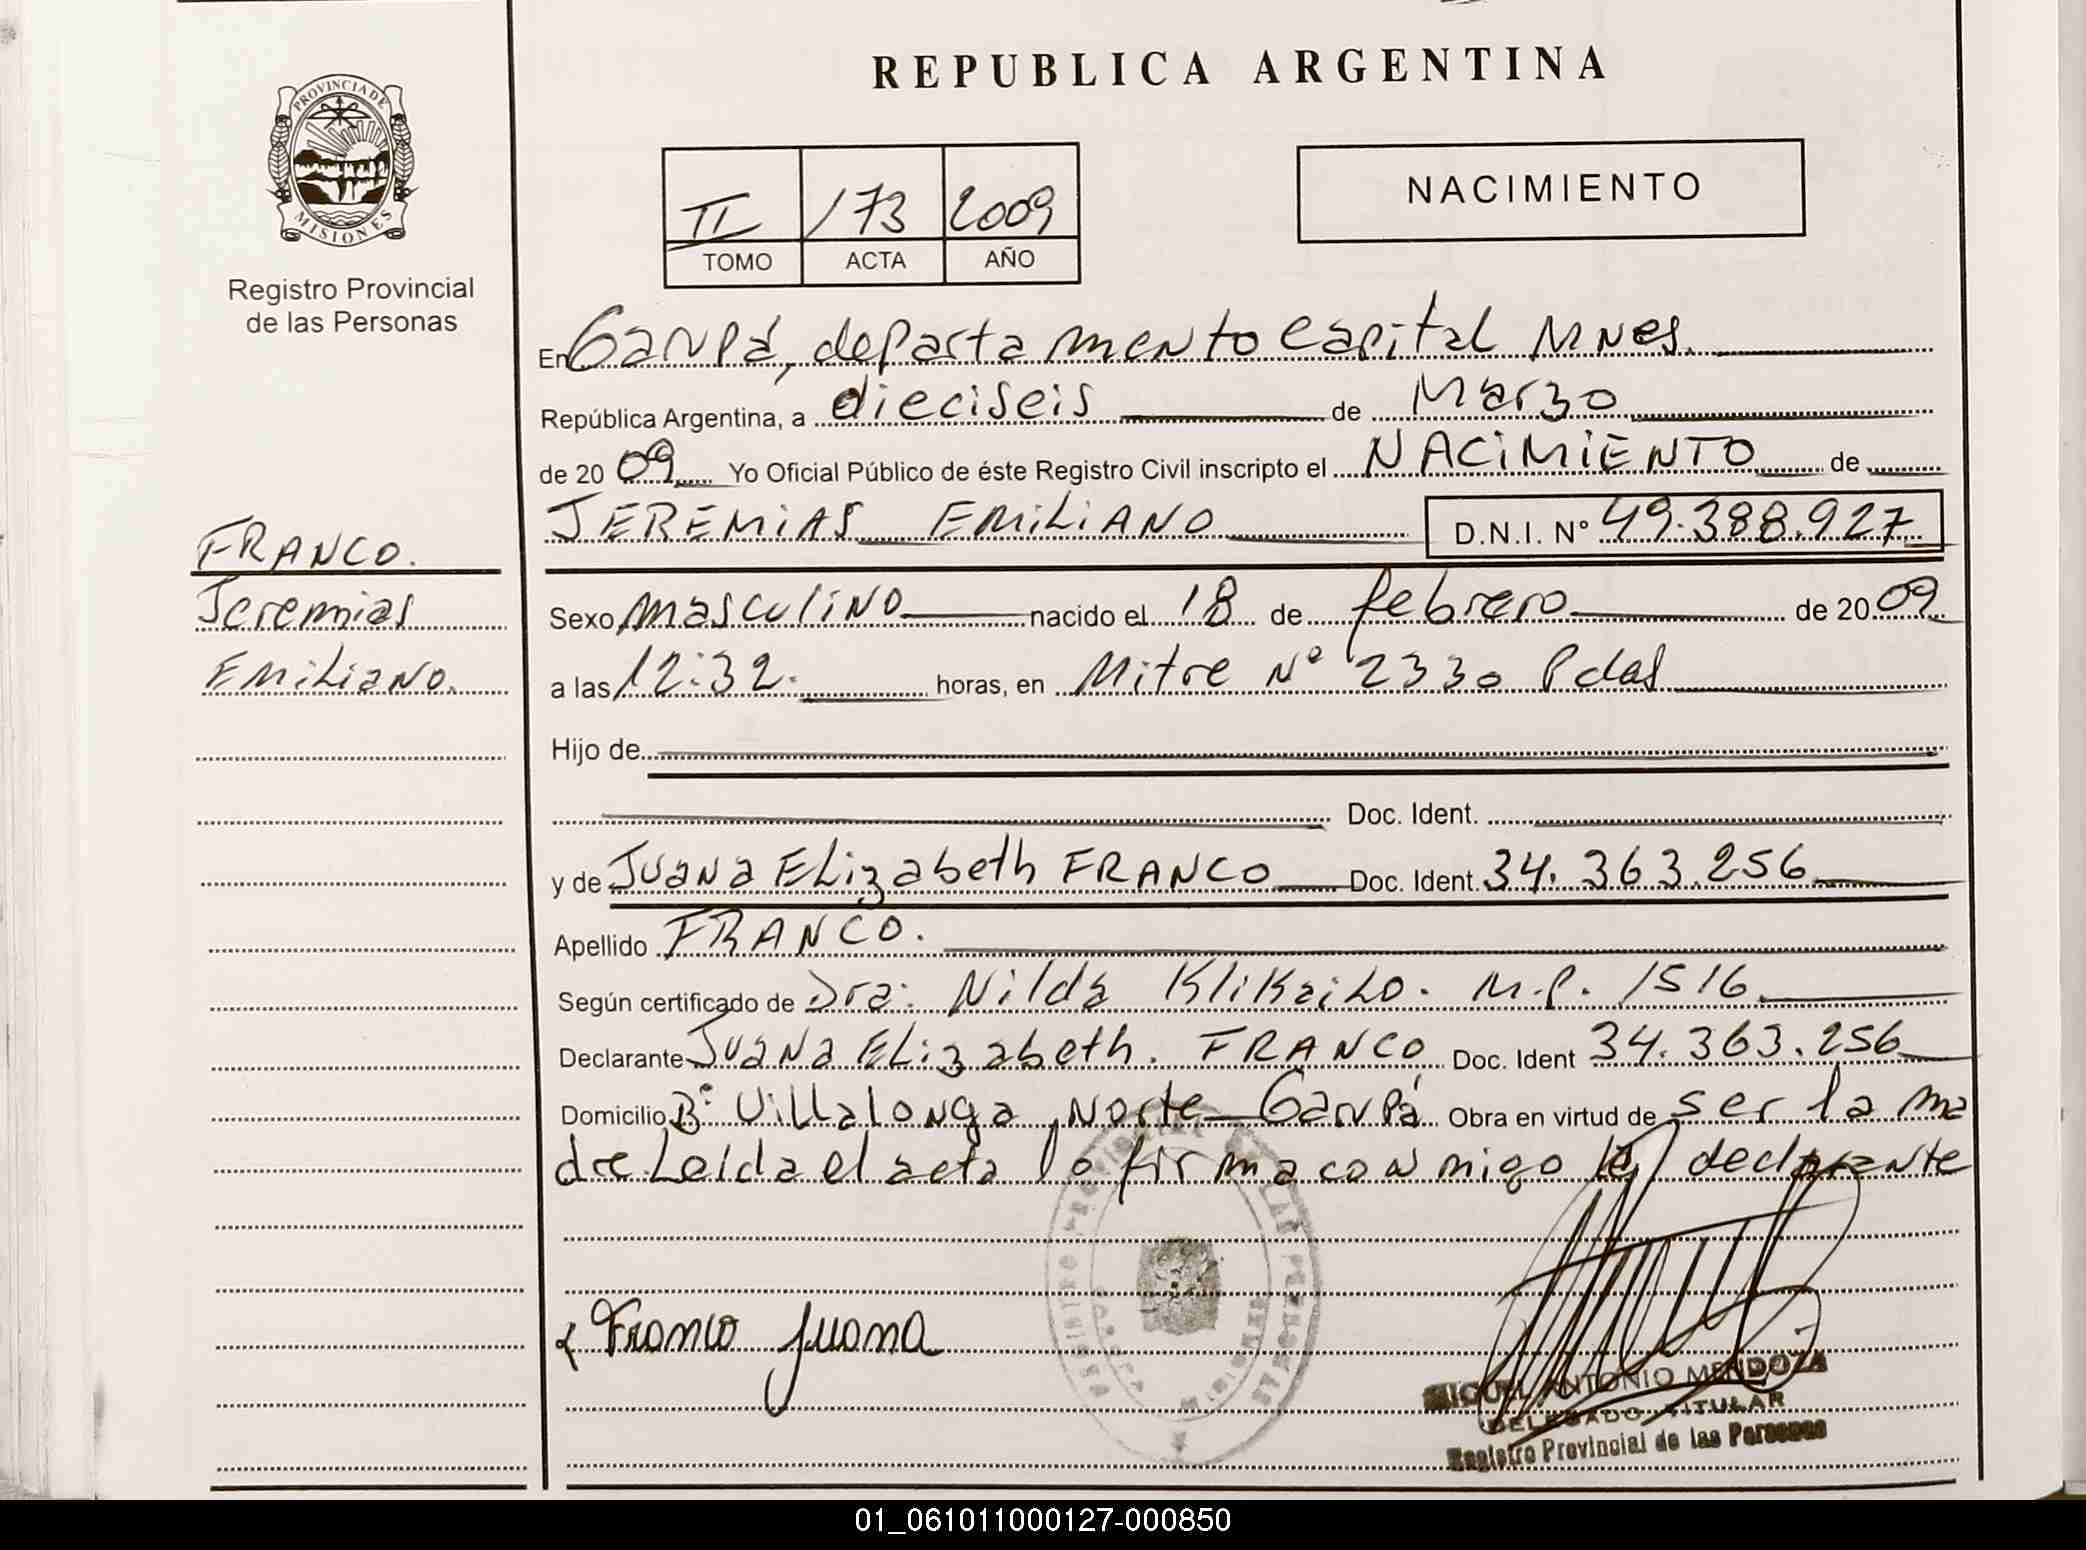 REPUBLICA ARGENTINA
PROVINCIA DE
MISIONES
Registro Provincial
de las Personas
NACIMIENTO
II 173 2009
TOMO ACTA AÑO
En Garupá, departamento Capital Mnes.
República Argentina, a dieciseis de Marzo
de 2009 Yo Oficial Público de éste Registro Civil inscripto el NACIMIENTO de
JEREMIAS EMILIANO D.N.I. Nº 49.388.927
FRANCO.
Jeremias
Emiliano.
Sexo masculino nacido el 18 de febrero de 2009
a las 12:32. horas, en Mitre Nº 2330 Pdas
Hijo de
Doc. Ident.
y de Juana Elizabeth FRANCO Doc. Ident. 34.363.256
Apellido FRANCO.
Según certificado de Dra. Nilda M.P. 1516
Declarante Juana Elizabeth. FRANCO Doc. Ident 34.363.256
Domicilio Bº Villalonga Norte Garupá Obra en virtud de ser la ma
dre Leida el acta lo firma conmigo la declarante
Franco Juana
MIGUEL ANTONIO MENDOZA
DELEGADO TITULAR
Registro Provincial de las Personas
01_061011000127-000850